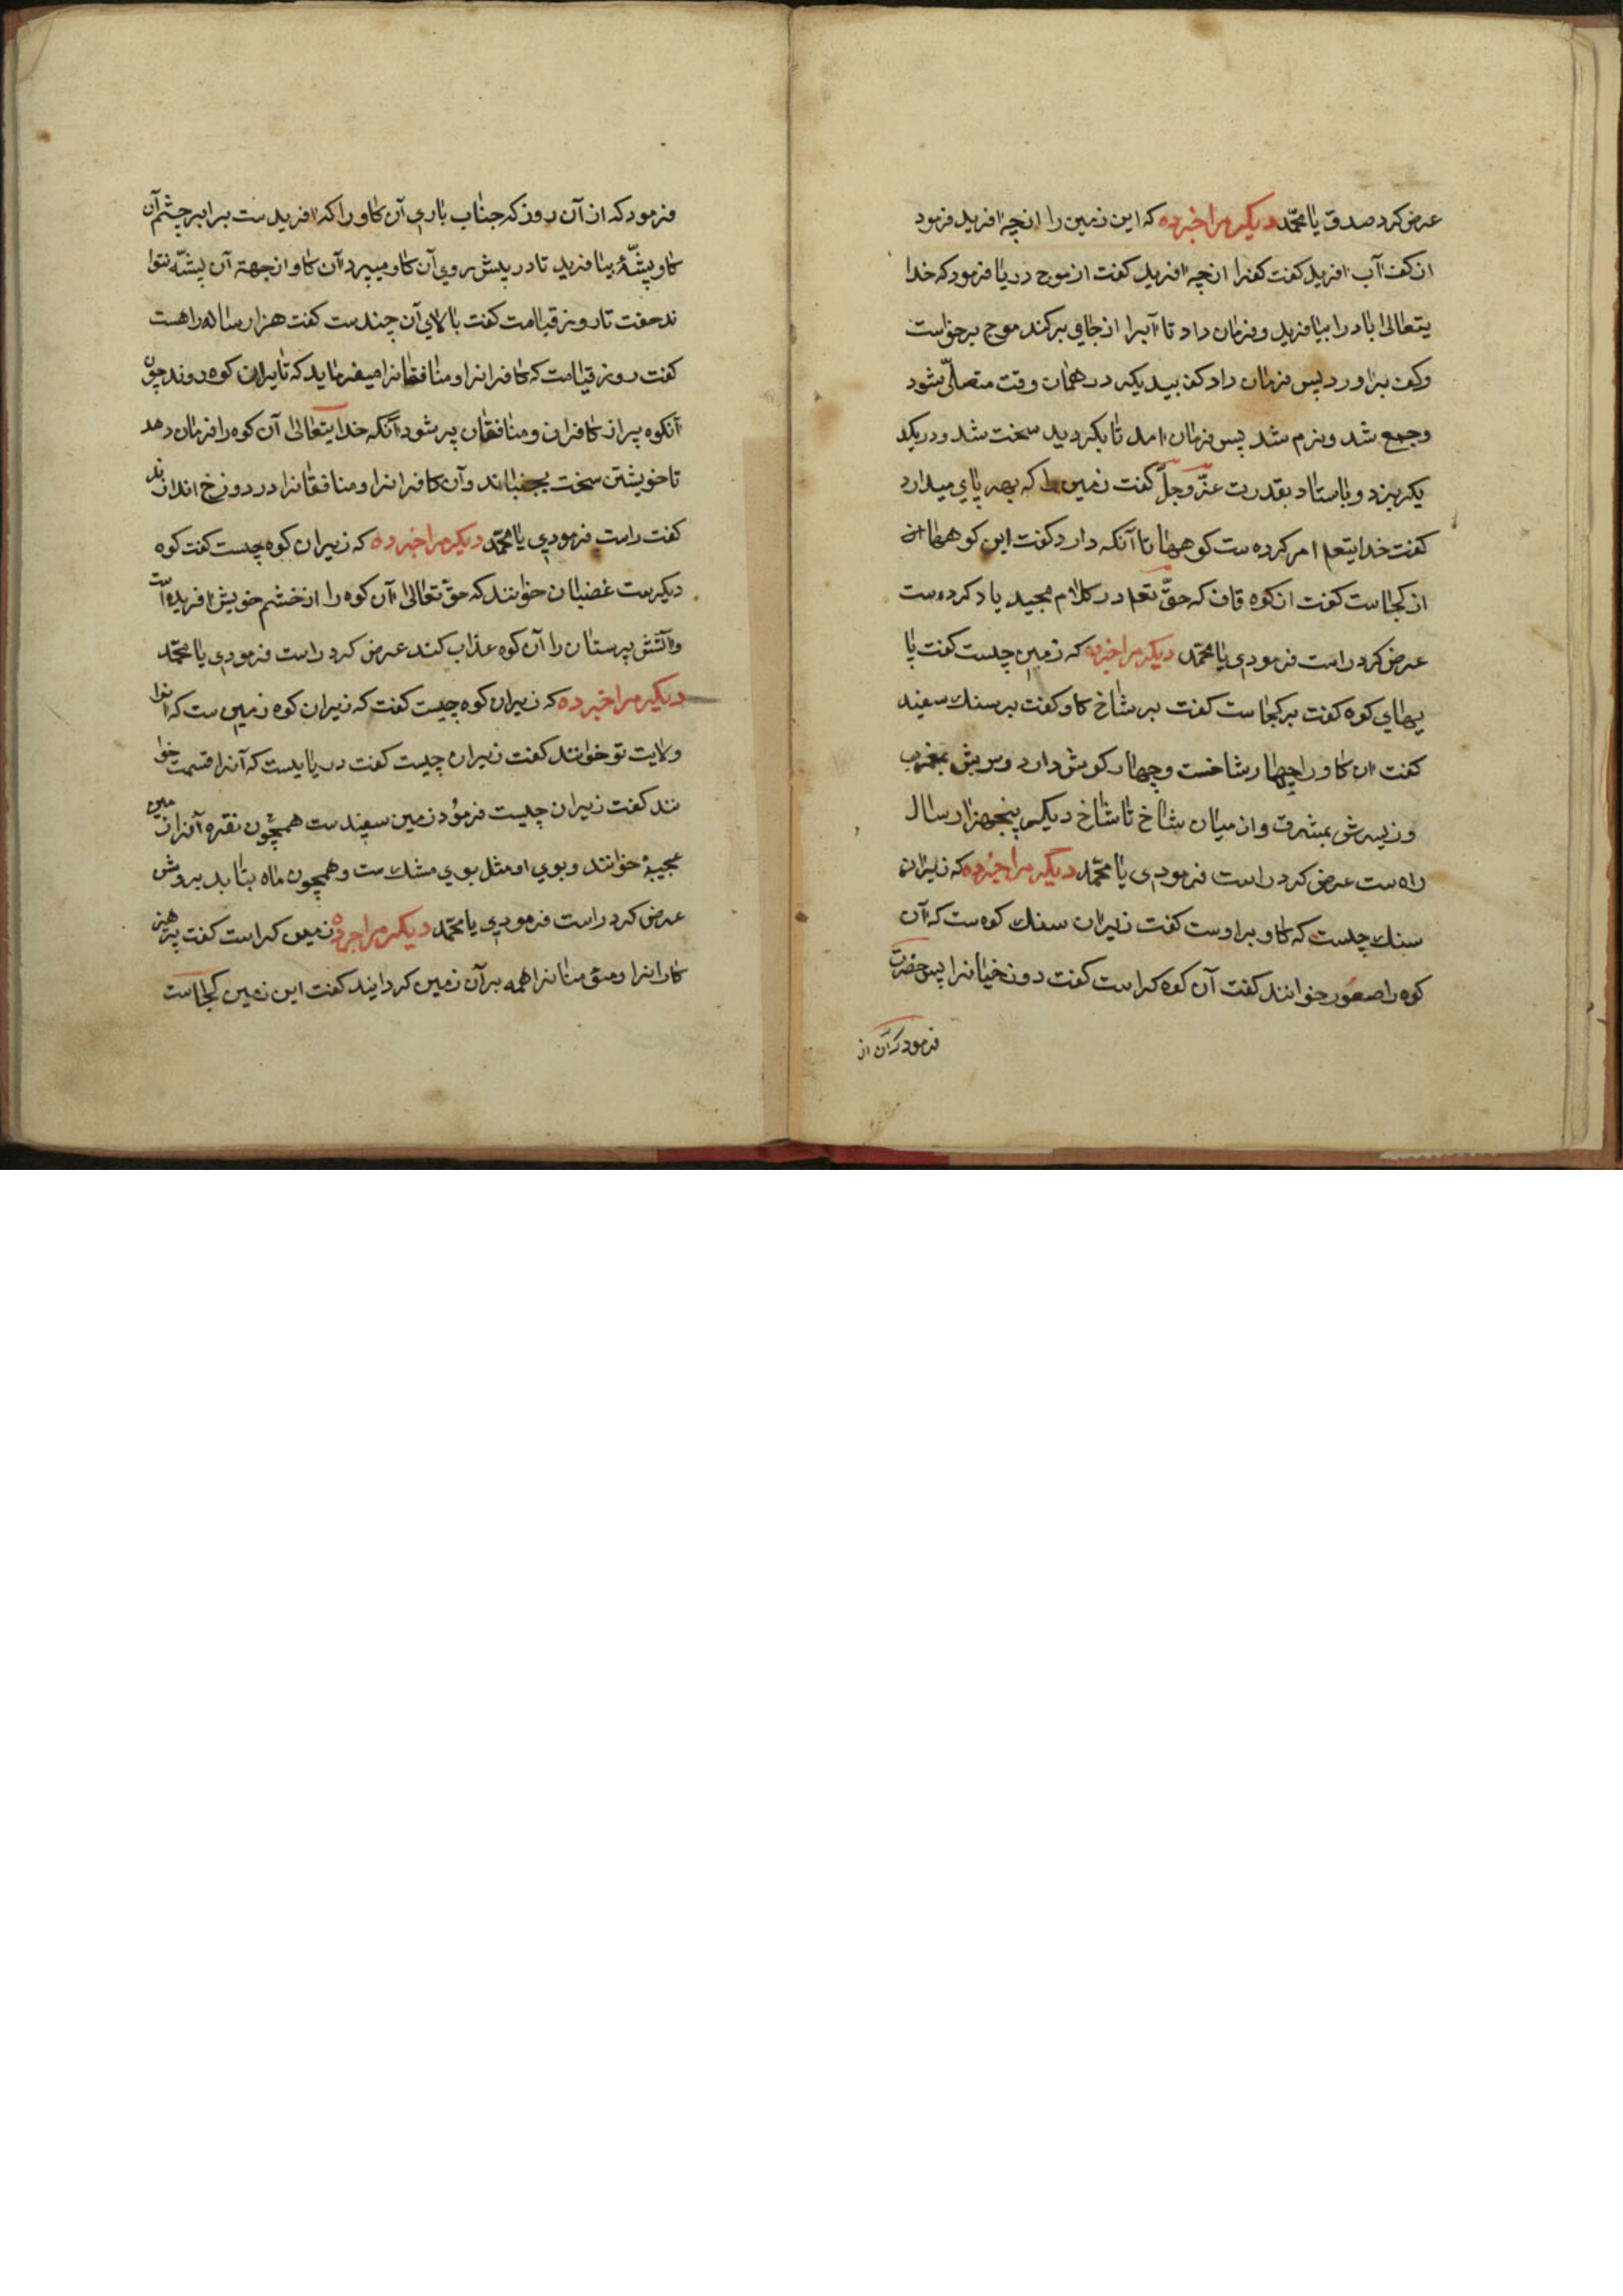 عرض کرد صدق یا محمّد دیکر مرا خبر ده که این زمین را از چه افرید فرمود
از کف آب افرید کفت کفرا از چه افرید کفت از موج دریا فرمود که خدا
یتعالی باد را بیافرید و فرمان داد تا آبرا از جای برکند موج برخواست
وکف براورد پس فرمان داد کف بیدیکر در همان وقت متصلّی شود
وجمع شد ونرم شد پس فرمان امد تا بکردید سخت شد ودریکد
یکر بزد و باستاد بقدرت عزّ وجلّ کفت زمین را که بهر پای میدارد
کفت خدایتعم امر کرده ست کوهها تا آنکه دارد کفت این کوهها از
از کجاست کفت از کوه قاف که حقّ تعم در کلام مجید یاد کرده ست
عرض کرد راست فرمودی یا محمّد دیکر مرا خبر ده که زمین چیست کفت پا
یهای کوه کفت بر کجاست کفت بر شاخ کاو کفت بر سنک سفید
کفت ان کاو را چهار شاخست و چهار کوش دارد وسرش بمغرب
وزیرش بمشرق واز میان شاخ تا شاخ دیکر پنجهزار سال
راه ست عرض کرد راست فرمودی یا محمّد دیگر مرا خبر ده که زیران
سنک چیست که کاو بر اوست کفت زیران سنک کوه ست که آن
کوه را صعور خوانند کفت آن کوه کراست کفت دوزخیانرا پس حضرت
فرمود که آن از
فرمود که از آن روز که جناب باری آن کاو را که افرید ست برابر چشم آن
کاو پشّهٔ بیافرید تا در پیش روی آن کاو میپرد آن کاو از جهة آن پشّه نتوا
ند خفت تا روز قیامت کفت بالای آن چند ست کفت هزار ساله راهست
کفت روز قیامت که کافرانرا ومنافقانرا میفرماید که تا بران کوه روند چون
آنکوه پر از کافران ومنافقان پر شود آنکه خدایتعالی آن کوه را فرمان دهد
تا خویشتن سخت بجنباند وآن کافرانرا ومنافقانرا در دوزخ اندازند
کفت راست فرمودی یا محمّد دیکر مرا خبر ده که زیران کوه چیست کفت کوه
دیکرست غضبان خوانند که حقّ تعالی آن کوه را از خشم خویش افریده است
وآتش پرستان را آن کوه عذاب کند عرض کرد راست فرمودی یا محمّد
دیکر مرا خبر ده که زیران کوه چیست کفت که زیران کوه زمین ست که انرا
ولایت تو خوانند کفت زیران چیست کفت دریایست که آنرا قسمت خوا
نند کفت زیران چیست فرمود زمین سپید ست همچون نقره آنرا زمین
عجیبهٔ خوانند وبوی او مثل بوی مشک ست وهمچون ماه بتابد بروش
عرض کرد راست فرمودی یا محمّد دیکر مرا خبر ده زمین کراست کفت پرهیز
کارانرا ومؤمنانرا همه بر آن زمین کردایند کفت این زمین کجاست